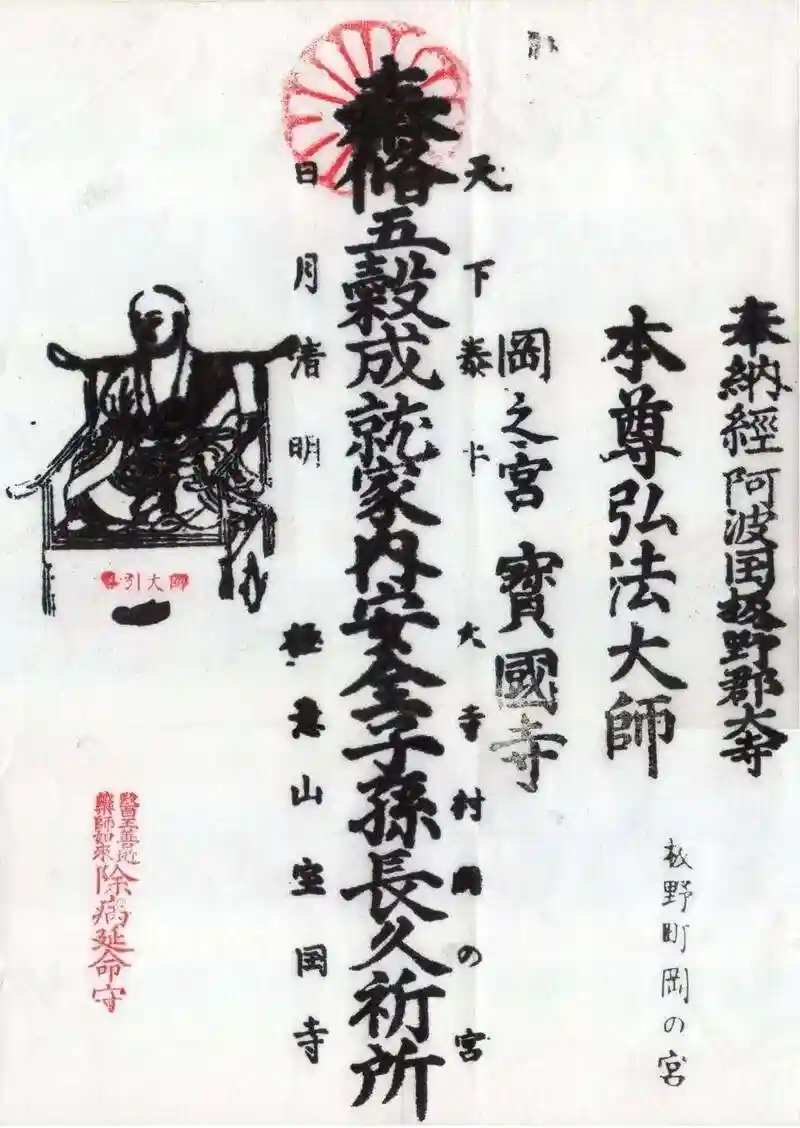 奉納經 阿波国板野郡大寺
板野町岡の宮
本尊弘法大師
岡之宮 寶國寺
天下泰 大寺村岡の宮
奉修五穀成就家内安全子孫長久祈所
日月清明 極意山宝国寺
引大師
醫王善
藥師如来
除病延命守